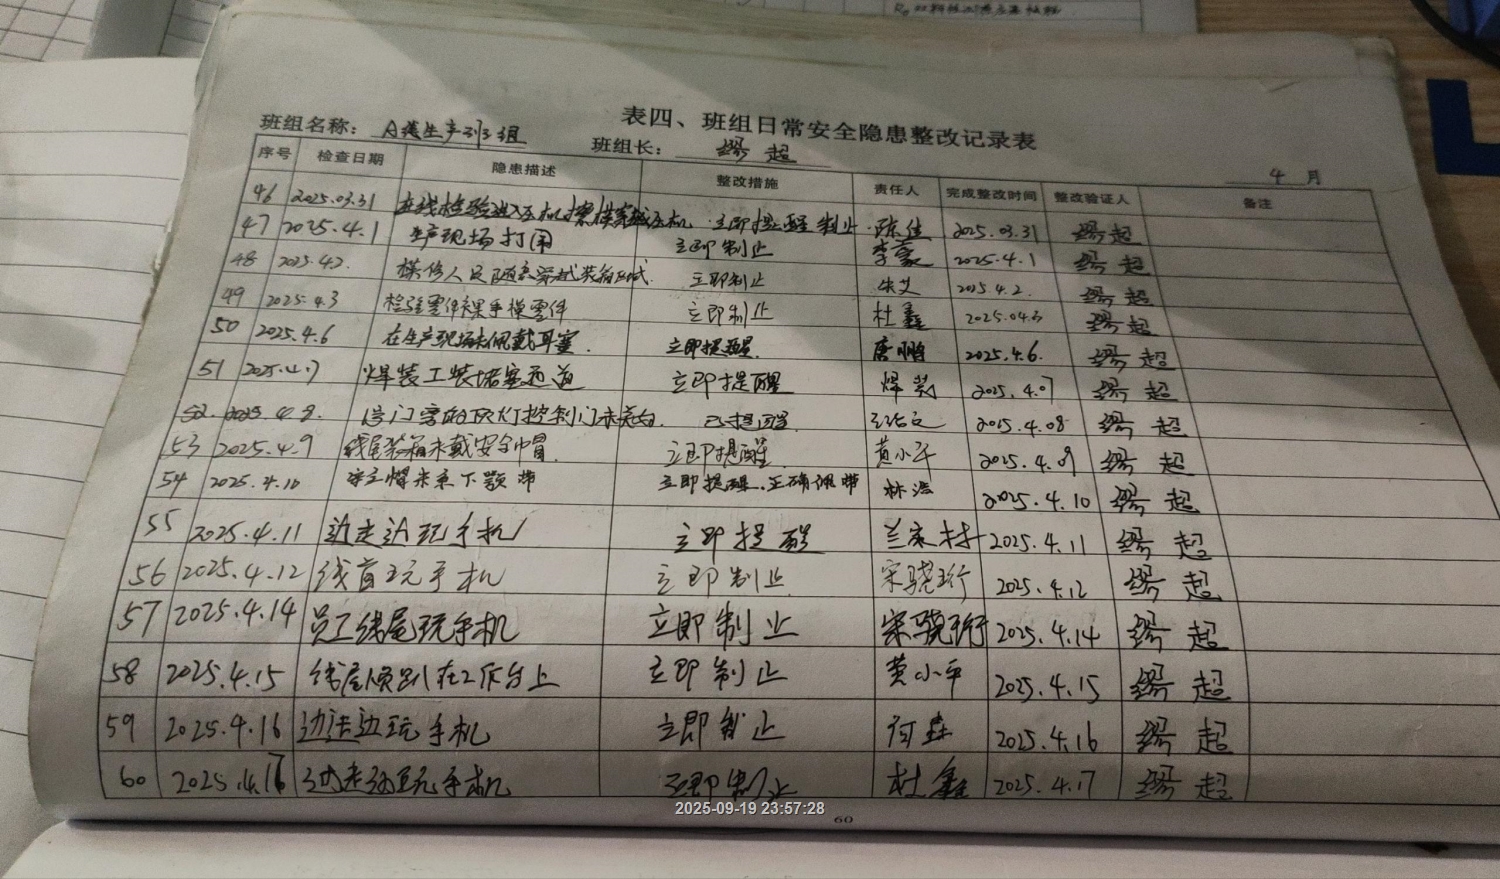 表四、班组日常安全隐患整改记录表
班组名称： A线生产班组 班组长： 缪超 4月
序号 检查日期 隐患描述 整改措施 责任人 完成整改时间 整改验证人 备注
46 2025.03.31 在线检验进入压机 压机 立即提醒制止 陈佳 2025.03.31 缪超
47 2025.4.1 生产现场打闹 立即制止 李豪 2025.4.1 缪超
48 2025.4.2. 模修人员随意穿越装箱区域 立即制止 朱艾 2025.4.2. 缪超
49 2025.4.3 检验零件裸手摸零件 立即制止 杜鑫 2025.04.3 缪超
50 2025.4.6 在生产现场未佩戴耳塞. 立即提醒. 唐鹏 2025.4.6. 缪超
51 2025.4.7 焊装工装堵塞通道 立即提醒 焊装 2025.4.07 缪超
52. 2025.4.8. 灯控制门未关 已提醒. 2025.4.08 缪超
53 2025.4.9 线尾装箱未戴安全帽. 立即提醒. 黄小平 2025.4.09 缪超
54 2025.4.10 安全帽未系下颚带 立即提醒.正确佩带 林浩 2025.4.10 缪超
55 2025.4.11 边走边玩手机 立即提醒 2025.4.11 缪超
56 2025.4.12 线首玩手机 立即制止 宋骁珩 2025.4.12 缪超
57 2025.4.14 员工线尾玩手机 立即制止 宋骁珩 2025.4.14 缪超
58 2025.4.15 线尾 在工作台上 立即制止 黄小平 2025.4.15 缪超
59 2025.4.16 边走边玩手机 立即制止 何森 2025.4.16 缪超
60 2025.4.17 边走边玩手机 立即制止 杜鑫 2025.4.17 缪超
2025-09-19 23:57:28
60